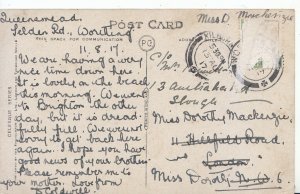 Queensmead
Selden Rd., Worthing
POST CARD
THIS SPACE FOR COMMUNICATION
11.8.17.
We are having a very
nice time down here.
It is lovely on the beach
this morning. We went
to Brighton the other
day, but it is dread-
fully full. We weren't
sorry to get back here
again. I hope you have
good news of your brother.
Please remember me to
your mother. Love from
Miss D Mackenzie
Slough
Miss Dorothy Mackenzie
11 Hillfield Road
Miss Dorothy N.W. 6